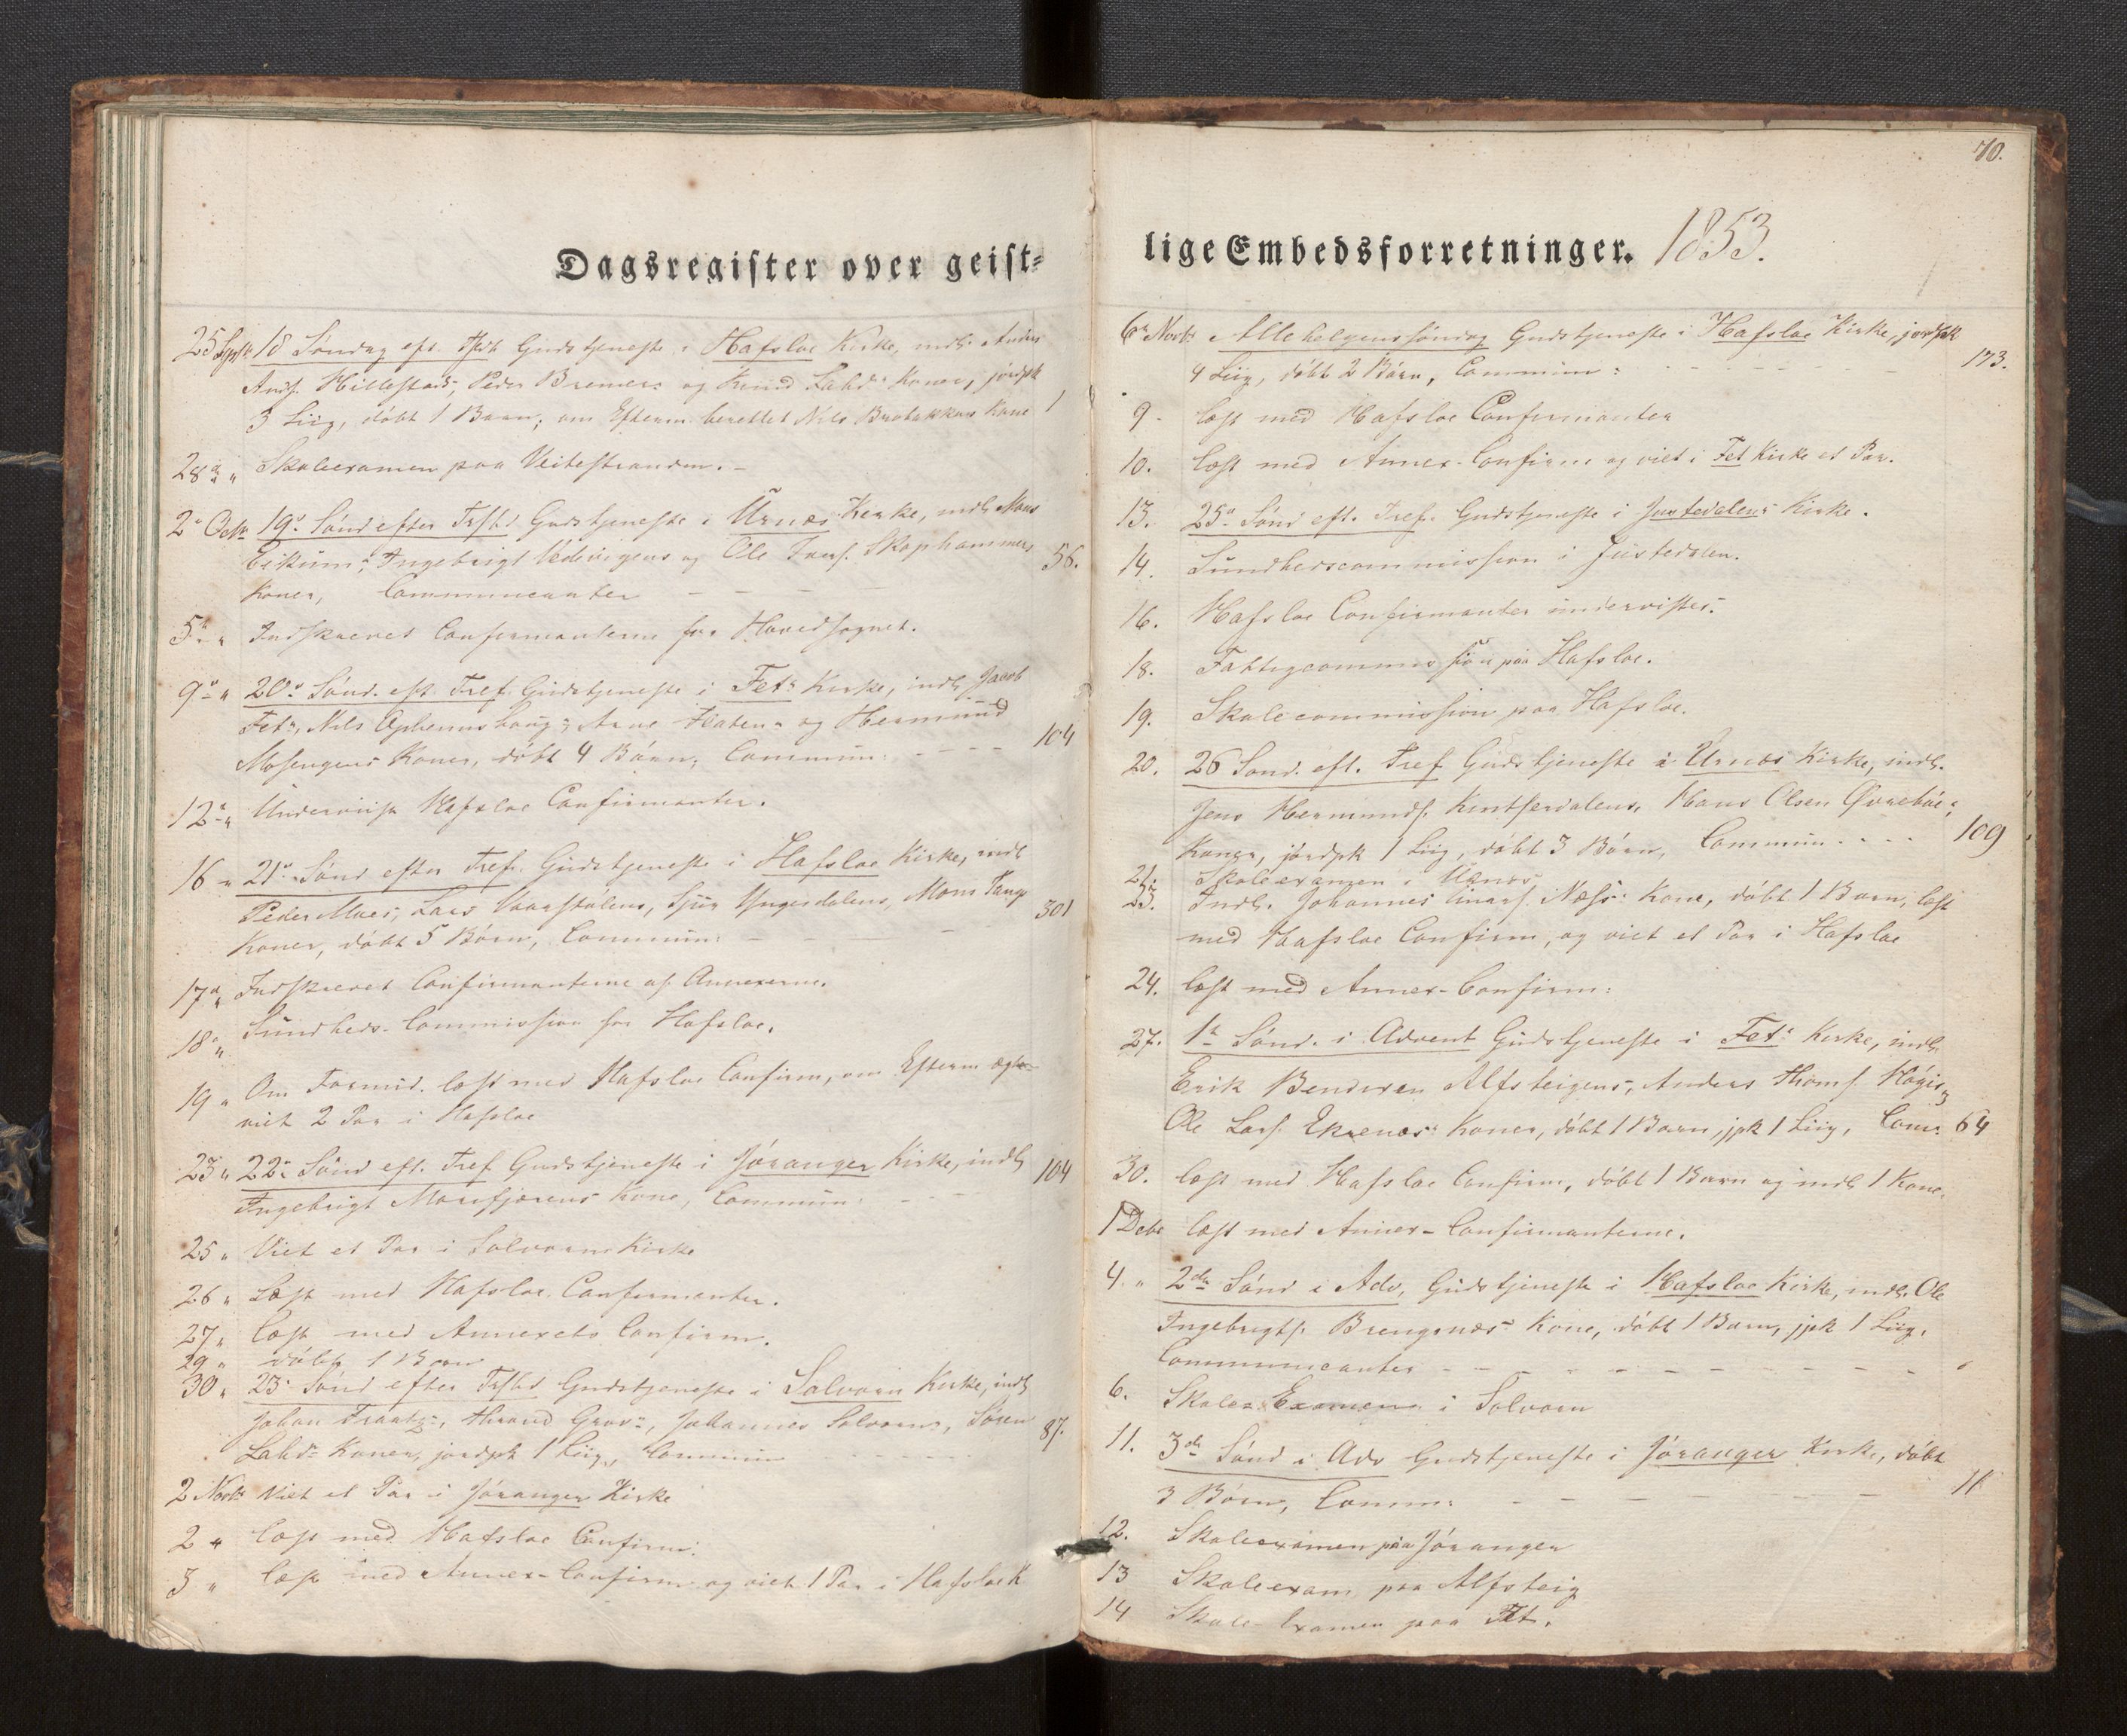 Dagsregister over geist-
25 Sept. 18 Søndag eft. Tref. Gudstjeneste i Hafsloe Kirke, indl. Anders
Ands. Hillestads, Peder Bremers og Knud Lahds Koner, jordpk
3 Liig, døbt 1 Barn, om Efterm berettet Nils Kone 1
28de " Skoleexamen paa Veitestranden. -
2 Octr. 19de Sønd efter Trftd Gudstjeneste i Urnæs Kirke, indl Mons
Eikums, Ingebrigt og Ole Ivers. Skaphammers
Koner, Communicanter - - - 56.
5te " Indskrevet Confirmanterne fra Hovedsognet.
9de " 20de Sønd. eft Tref. Gudstjeneste i Fets Kirke, indl. Jacob
Fets, Nils Arne og Hermund
Mosengens Koner, døbt 4 Børn, Commun: - - - - 104
12te " Underviist Hafsloe Confirmanter.
16 " 21de Sønd efter Tref. Gudstjeneste i Hafsloe Kirke, indl
Peder Moes, Lars Sjur Mons Tangs
Koner, døbt 5 Børn, Commun: - - 301
17de " Indskrevet Confirmanterne af Annexerne.
18 " Sundheds-Commission for Hafsloe.
19 " Om Formid. læst med Hafsloe Confirm, om Efterm
viet 2 Par i Hafsloe
23 " 22de Sønd eft. Tref Gudstjeneste i Jøranger Kirke, indl
Ingebrigt Marifjærens Kone, Commun: - - - 104
25 " Viet et Par i Solvorn Kirke
26 " Læst med Hafsloe Confirmanter.
27 " læst med Annexets Confirm.
29 " døbt 1 Barn
30 " 23de Sønd efter Trftd Gudstjeneste i Solvorn Kirke, indl
Johan Frantz, Thrond Johannes Solvorns, Søren
Lahds Koner, jordpk 1 Liig, Commun - - - 87.
2 Novbr Viet et Par i Jøranger Kirke
2 " læst med Hafsloe Confirm:
3 " læst med Annex-Confirm og viet 1 Par i Hafsloe K
70.
lige Embedsforretninger. 1853.
6te Novbr. Allehelgenssøndag Gudstjeneste i Hafsloe Kirke, jordpk
4 Liig, døbt 2 Børn, Commun: - - - - - 173.
9 - læst med Hafsloe Confirmanter
10. læst med Annex-Confirm og viet i Fet Kirke et Par.
13. 25de Sønd eft. Tref. Gudstjeneste i Justedalens Kirke.
14. Sundhedscommission i Justedalen.
16. Hafsloe Confirmanter undervistes.
18. Fattigcommission paa Hafsloe.
19. Skolecommission paa Hafsloe.
20. 26 Sønd. eft. Tref Gudstjeneste i Urnæs Kirke, indl.
Jens Hermunds. Hans Olsen Øvrebøes
Koner, jordpk 1 Liig, døbt 3 Børn, Commun. - - - 109
21. Skoleexamen i Urnæs
23. Indl. Johannes Einars. Næss: Kone, døbt 1 Barn, læst
med Hafsloe Confirm, og viet et Par i Hafsloe
24. læst med Annex-Confirm:
27. 1ste Sønd. i Advent Gudstjeneste i Fets Kirke, indl.
Erik Bendixen Alfsteigens, Anders Thoms.
Ole Lars. Ekrenæs: Koner, døbt 1 Barn, jpk 1 Liig, Com: 64
30. læst med Hafsloe Confirm, døbt 1 Barn og indl 1 Kone.
1 Debr læst med Annex-Confirmanterne.
4. " 2den Sønd i Adv, Gudstjeneste i Hafsloe Kirke, indl. Ole
Ingebrigts. Kone, døbt 1 Barn, jpk 1 Liig.
Communicanter - - - - - - - - - -
6. Skole Examen i Solvorn
11. 3die Sønd i Adv Gudstjeneste i Jøranger Kirke, døbt
3 Børn, Comm: - - - - - - 11
12. Skoleexamen paa Jøranger
13 Skoleexam paa Alfsteig
14 Skole-Examen paa Fet.